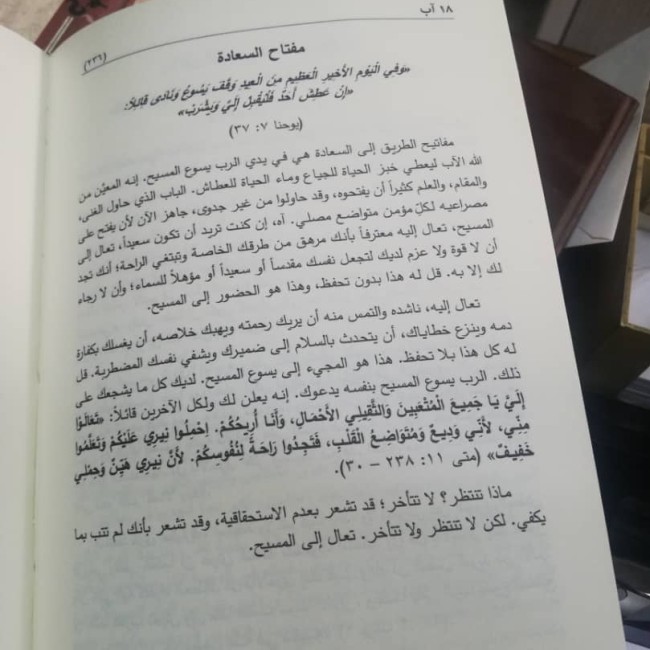 ١٨ آب
(٢٣٦)
مفتاح السعادة
«وَفِي الْيَوْمِ الأَخِيرِ الْعَظِيمِ مِنَ الْعِيدِ وَقَفَ يَسُوعُ وَنَادَى قَائِلاً:
«إِنْ عَطِشَ أَحَدٌ فَلْيُقْبِلْ إِلَيَّ وَيَشْرَبْ»
(يوحنا ٧: ٣٧)
مفاتيح الطريق إلى السعادة هي في يدي الرب يسوع المسيح. إنه المعيّن من
الله الآب ليعطي خبز الحياة للجياع وماء الحياة للعطاش. الباب الذي حاول الغنى،
والمقام، والعلم كثيراً أن يفتحوه، وقد حاولوا من غير جدوى، جاهز الآن لأن يفتح على
مصراعيه لكلّ مؤمن متواضع مصلي. آه، إن كنت تريد أن تكون سعيداً، تعال إلى
المسيح، تعال إليه معترفاً بأنك مرهق من طرقك الخاصة وتبتغي الراحة؛ أنك تجد
أن لا قوة ولا عزم لديك لتجعل نفسك مقدساً أو سعيداً أو مؤهلاً للسماء؛ وأن لا رجاء
لك إلا به. قل له هذا بدون تحفظ، وهذا هو الحضور إلى المسيح.
تعال إليه، ناشده والتمس منه أن يريك رحمته ويهبك خلاصه، أن يغسلك بكفارة
دمه وينزع خطاياك، أن يتحدث بالسلام إلى ضميرك ويشفي نفسك المضطربة. قل
له كل هذا بلا تحفظ. هذا هو المجيء إلى يسوع المسيح. لديك كل ما يشجعك على
ذلك. الرب يسوع المسيح بنفسه يدعوك. إنه يعلن لك ولكل الآخرين قائلاً: «تَعَالَوْا
إِلَيَّ يَا جَمِيعَ الْمُتْعَبِينَ وَالثَّقِيلِي الأَحْمَالِ، وَأَنَا أُرِيحُكُمْ. اِحْمِلُوا نِيرِي عَلَيْكُمْ وَتَعَلَّمُوا
مِنِّي، لأَنِّي وَدِيعٌ وَمُتَوَاضِعُ الْقَلْبِ، فَتَجِدُوا رَاحَةً لِنُفُوسِكُمْ. لأَنَّ نِيرِي هَيِّنٌ وَحِمْلِي
خَفِيفٌ» (متى ١١: ٢٣٨ – ٣٠).
ماذا تنتظر؟ لا تتأخر؛ قد تشعر بعدم الاستحقاقية، وقد تشعر بأنك لم تتب بما
يكفي. لكن لا تنتظر ولا تتأخر. تعال إلى المسيح.